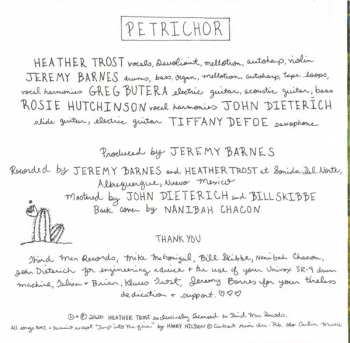 PETRICHOR
HEATHER TROST vocals, Devolunit, mellotron, autoharp, violin
JEREMY BARNES drums, bass, organ, mellotron, autoharp, tape loops,
vocal harmonies GREG BUTERA electric guitar, acoustic guitar, bass
ROSIE HUTCHINSON vocal harmonies JOHN DIETERICH
slide guitar, electric guitar TIFFANY DEFOE saxophone
Produced by JEREMY BARNES
Recorded by JEREMY BARNES and HEATHER TROST at Sonida Del Norte,
Albuquerque, Nuevo Mexico
Mastered by JOHN DIETERICH and BILL SKIBBE
Back cover by NANIBAH CHACON
THANK YOU
Third Man Records, Mike McGonigal, Bill Skibbe, Nanibah Chacon,
John Dieterich for engineering advice + the use of your Univox SR-9 drum
machine, Brian, Klaus Trost, Jeremy Barnes for your tireless
dedication + support. ♡♡♡
℗ + © 2020 HEATHER TROST exclusively licensed to Third Man Records.
All songs except "Jump into the fire" by HARRY NILSSON